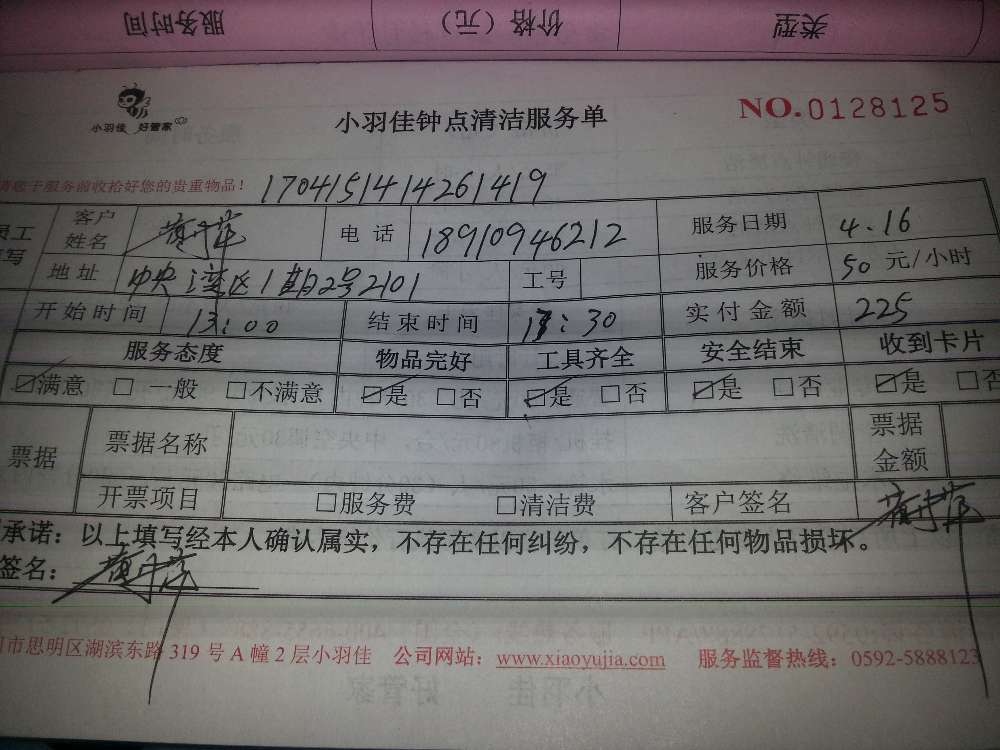 类型 价格（元） 服务时间
小羽佳 好管家
小羽佳钟点清洁服务单
NO.0128125
请您于服务前收拾好您的贵重物品！ 1704151414261419
客户姓名 电话 18910946212 服务日期 4.16
地址 中央湾区1期2号2101 工号 服务价格 50 元/小时
开始时间 13:00 结束时间 17:30 实付金额 225
服务态度 物品完好 工具齐全 安全结束 收到卡片
☑满意 □一般 □不满意 ☑是 □否 ☑是 □否 ☑是 □否 ☑是 □否
票据 票据名称 票据金额
开票项目 □服务费 □清洁费 客户签名
承诺：以上填写经本人确认属实，不存在任何纠纷，不存在任何物品损坏。
签名：
市思明区湖滨东路 319 号 A 幢 2 层小羽佳 公司网站：www.xiaoyujia.com 服务监督热线：0592-5888123